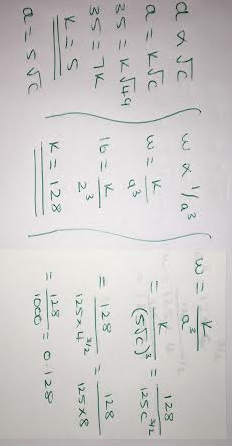 a ∝ √c
a = k√c
35 = k√49
35 = 7k
k = 5
a = 5√c
w ∝ 1/a³
w = k/a³
16 = k/2³
k = 128
w = k/a³
= k/(5√c)³ = 128/125c^(3/2)
= 128/125×4^(3/2) = 128/125×8
= 128/1000 = 0.128